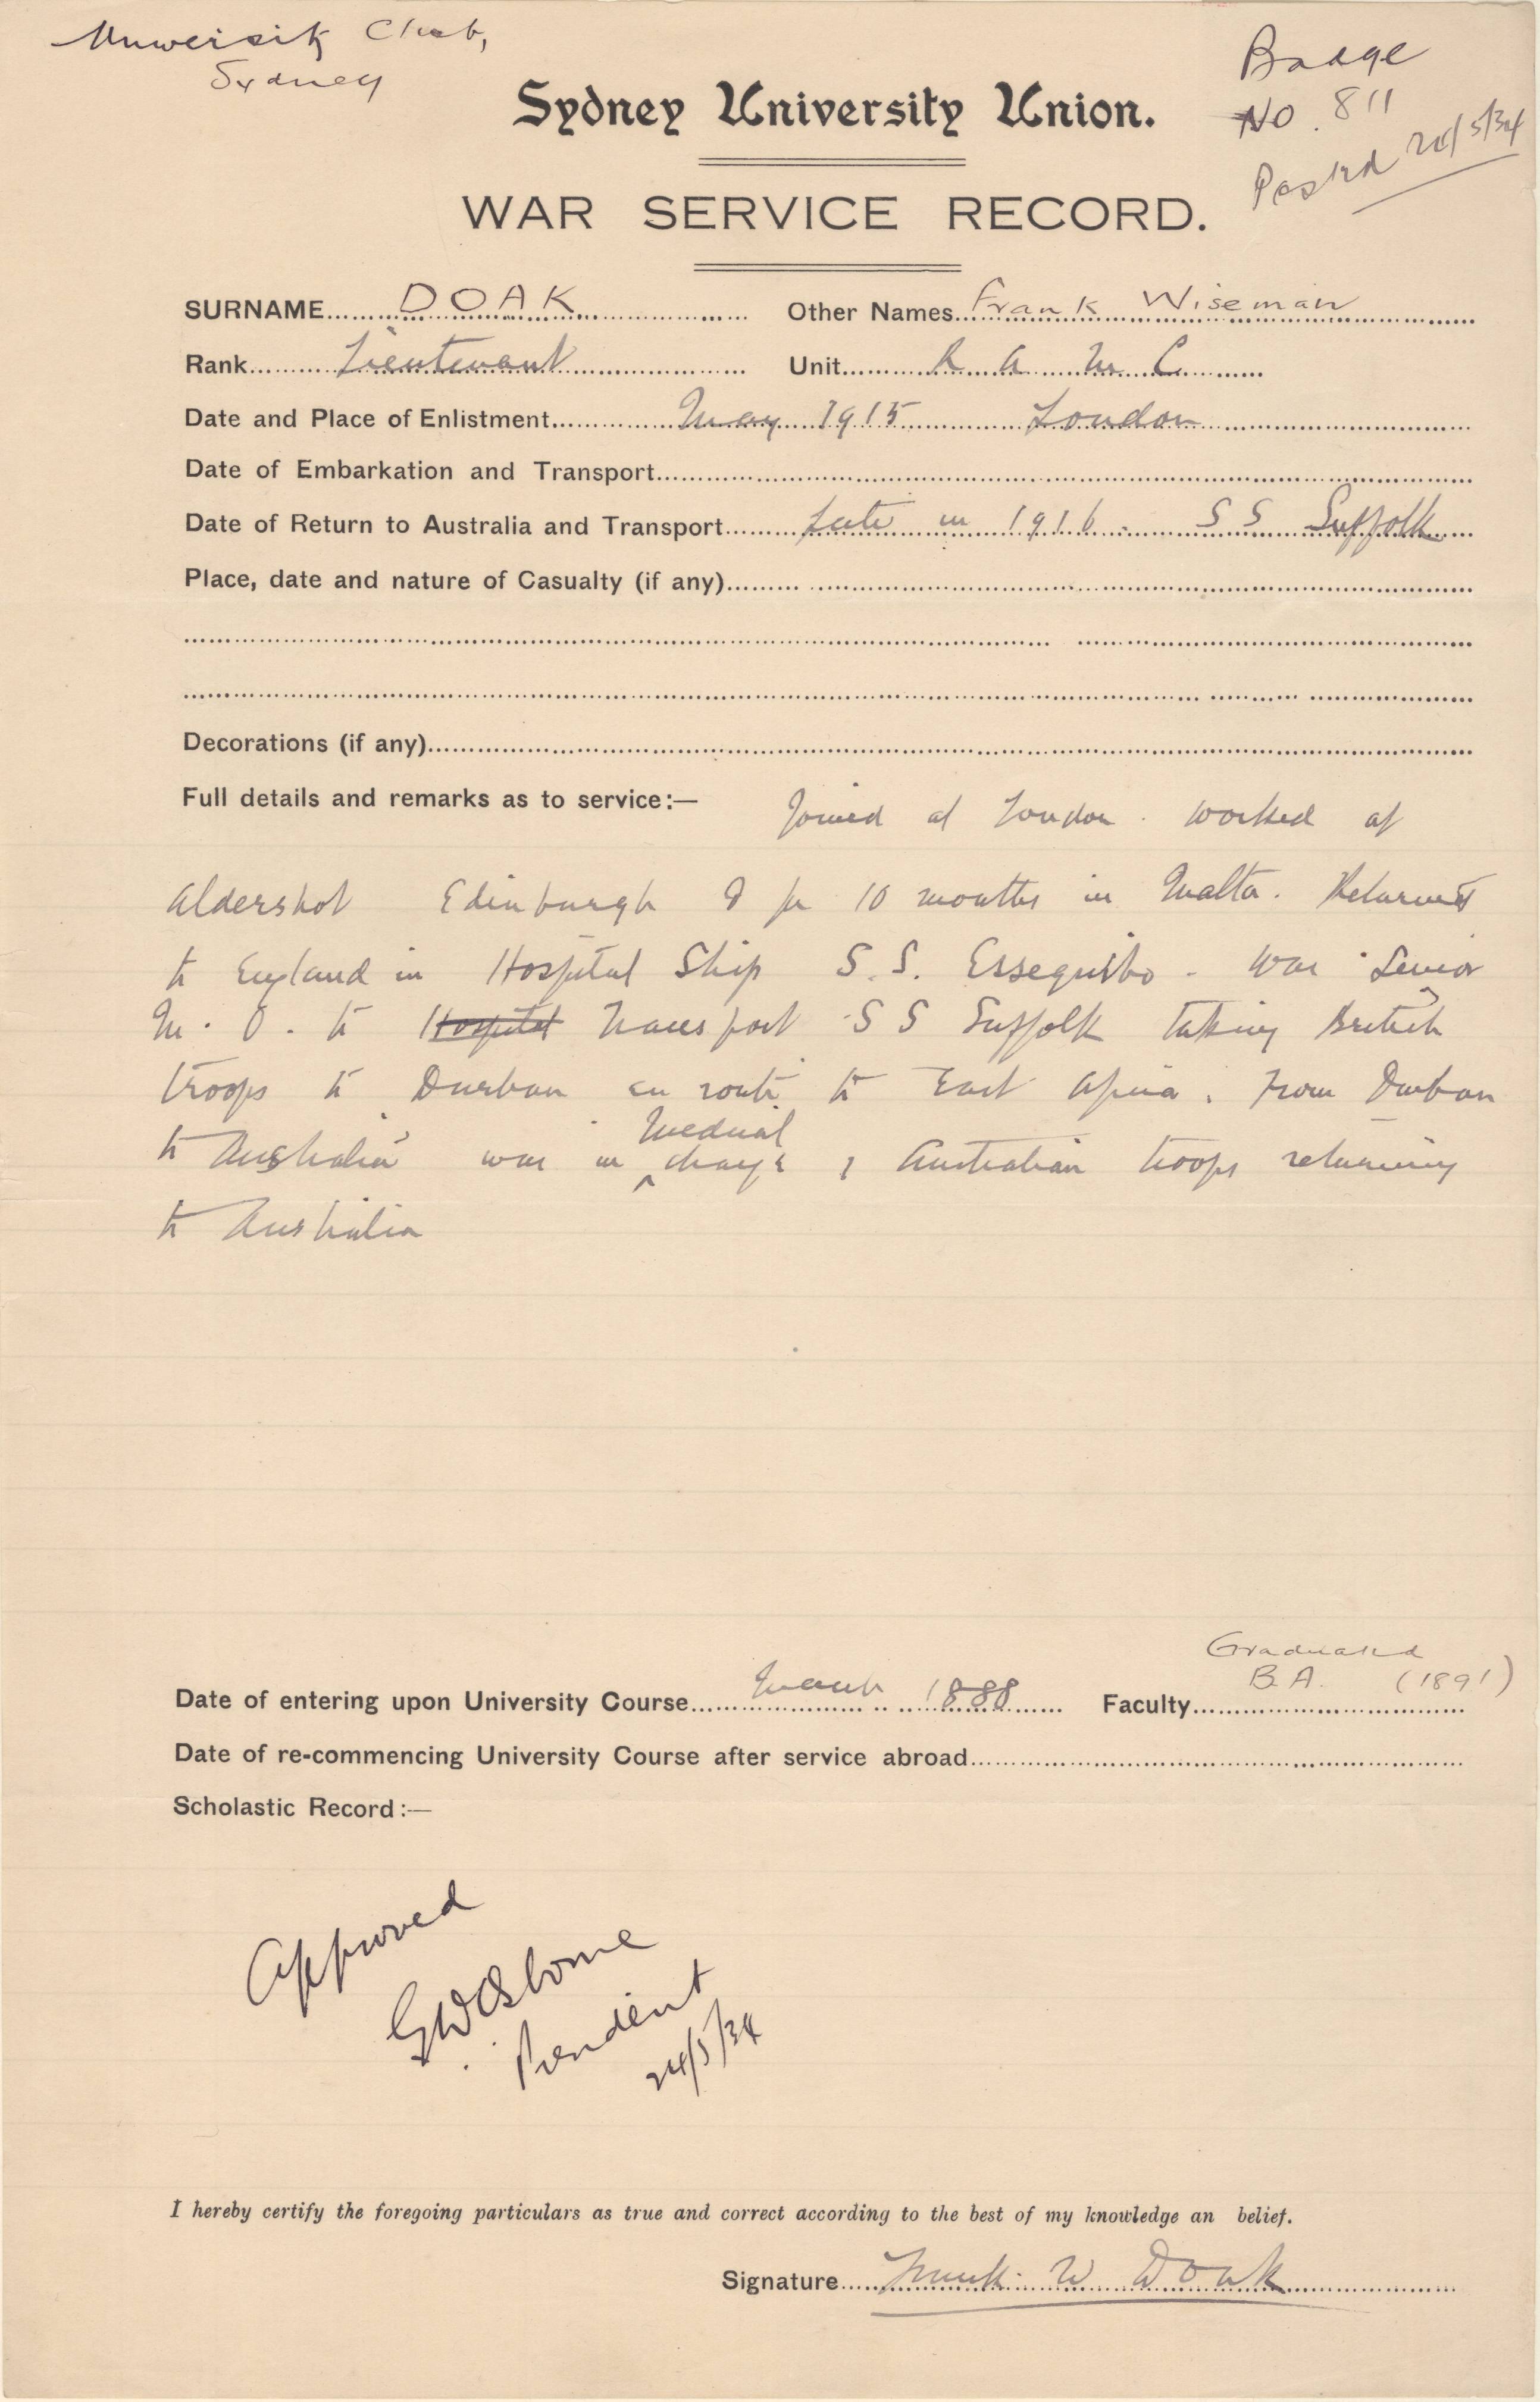 University Club,
Sydney
Badge
No. 811
Posted 24/5/34
Sydney University Union.
WAR SERVICE RECORD.
SURNAME DOAK Other Names Frank Wiseman
Rank Lieutenant Unit R A M C
Date and Place of Enlistment May 1915 London
Date of Embarkation and Transport
Date of Return to Australia and Transport Late in 1916. SS Suffolk
Place, date and nature of Casualty (if any)
Decorations (if any)
Full details and remarks as to service:— Joined at London. Worked at
Aldershot Edinburgh & for 10 months in Malta. Returned
to England in Hospital Ship S.S. Essequibo - was Senior
M.O. to Hospital Transport S S Suffolk taking British
troops to Durban en route to East Africa. From Durban
to Australia was in Medical charge of Australian troops returning
to Australia
Date of entering upon University Course March 1888 Faculty Graduated B.A. (1891)
Date of re-commencing University Course after service abroad
Scholastic Record:—
Approved
GWOsborne
President
24/5/34
I hereby certify the foregoing particulars as true and correct according to the best of my knowledge an belief.
Signature Frank W Doak